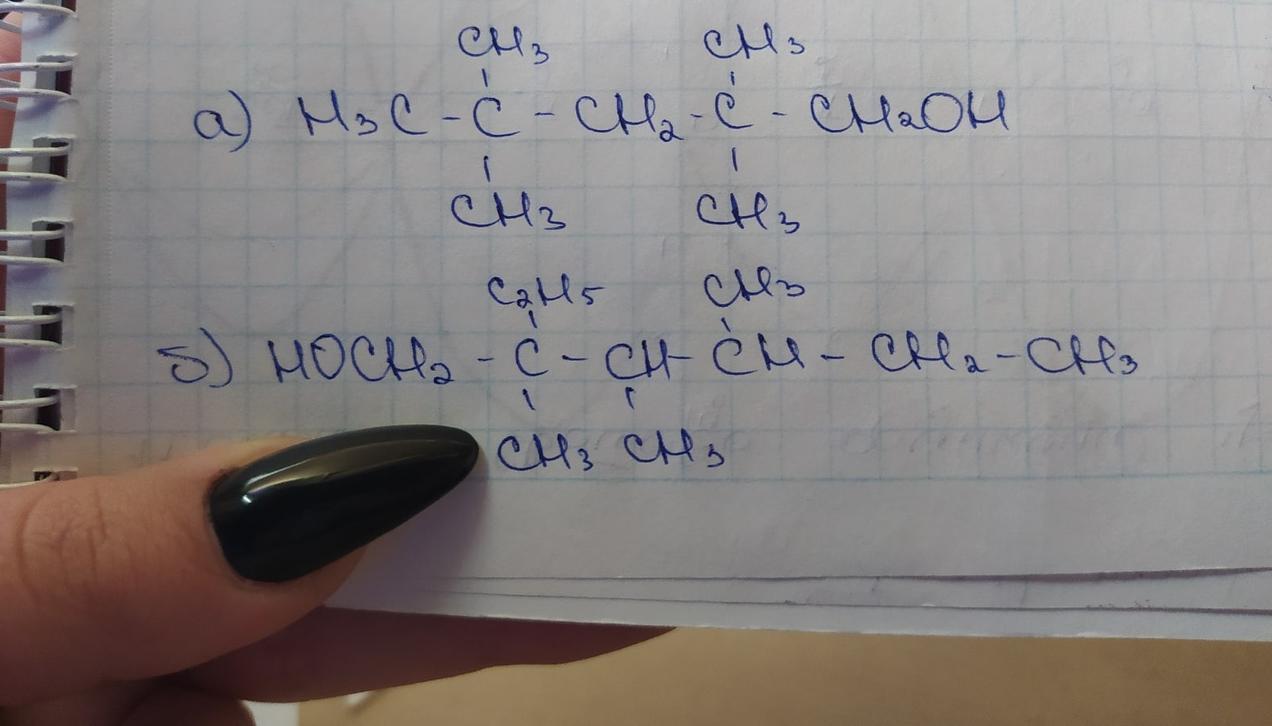 CH₃ CH₃
а) H₃C - C - CH₂ - C - CH₂OH
CH₃ CH₃
C₂H₅ CH₃
б) HOCH₂ - C - CH - CH - CH₂ - CH₃
CH₃ CH₃